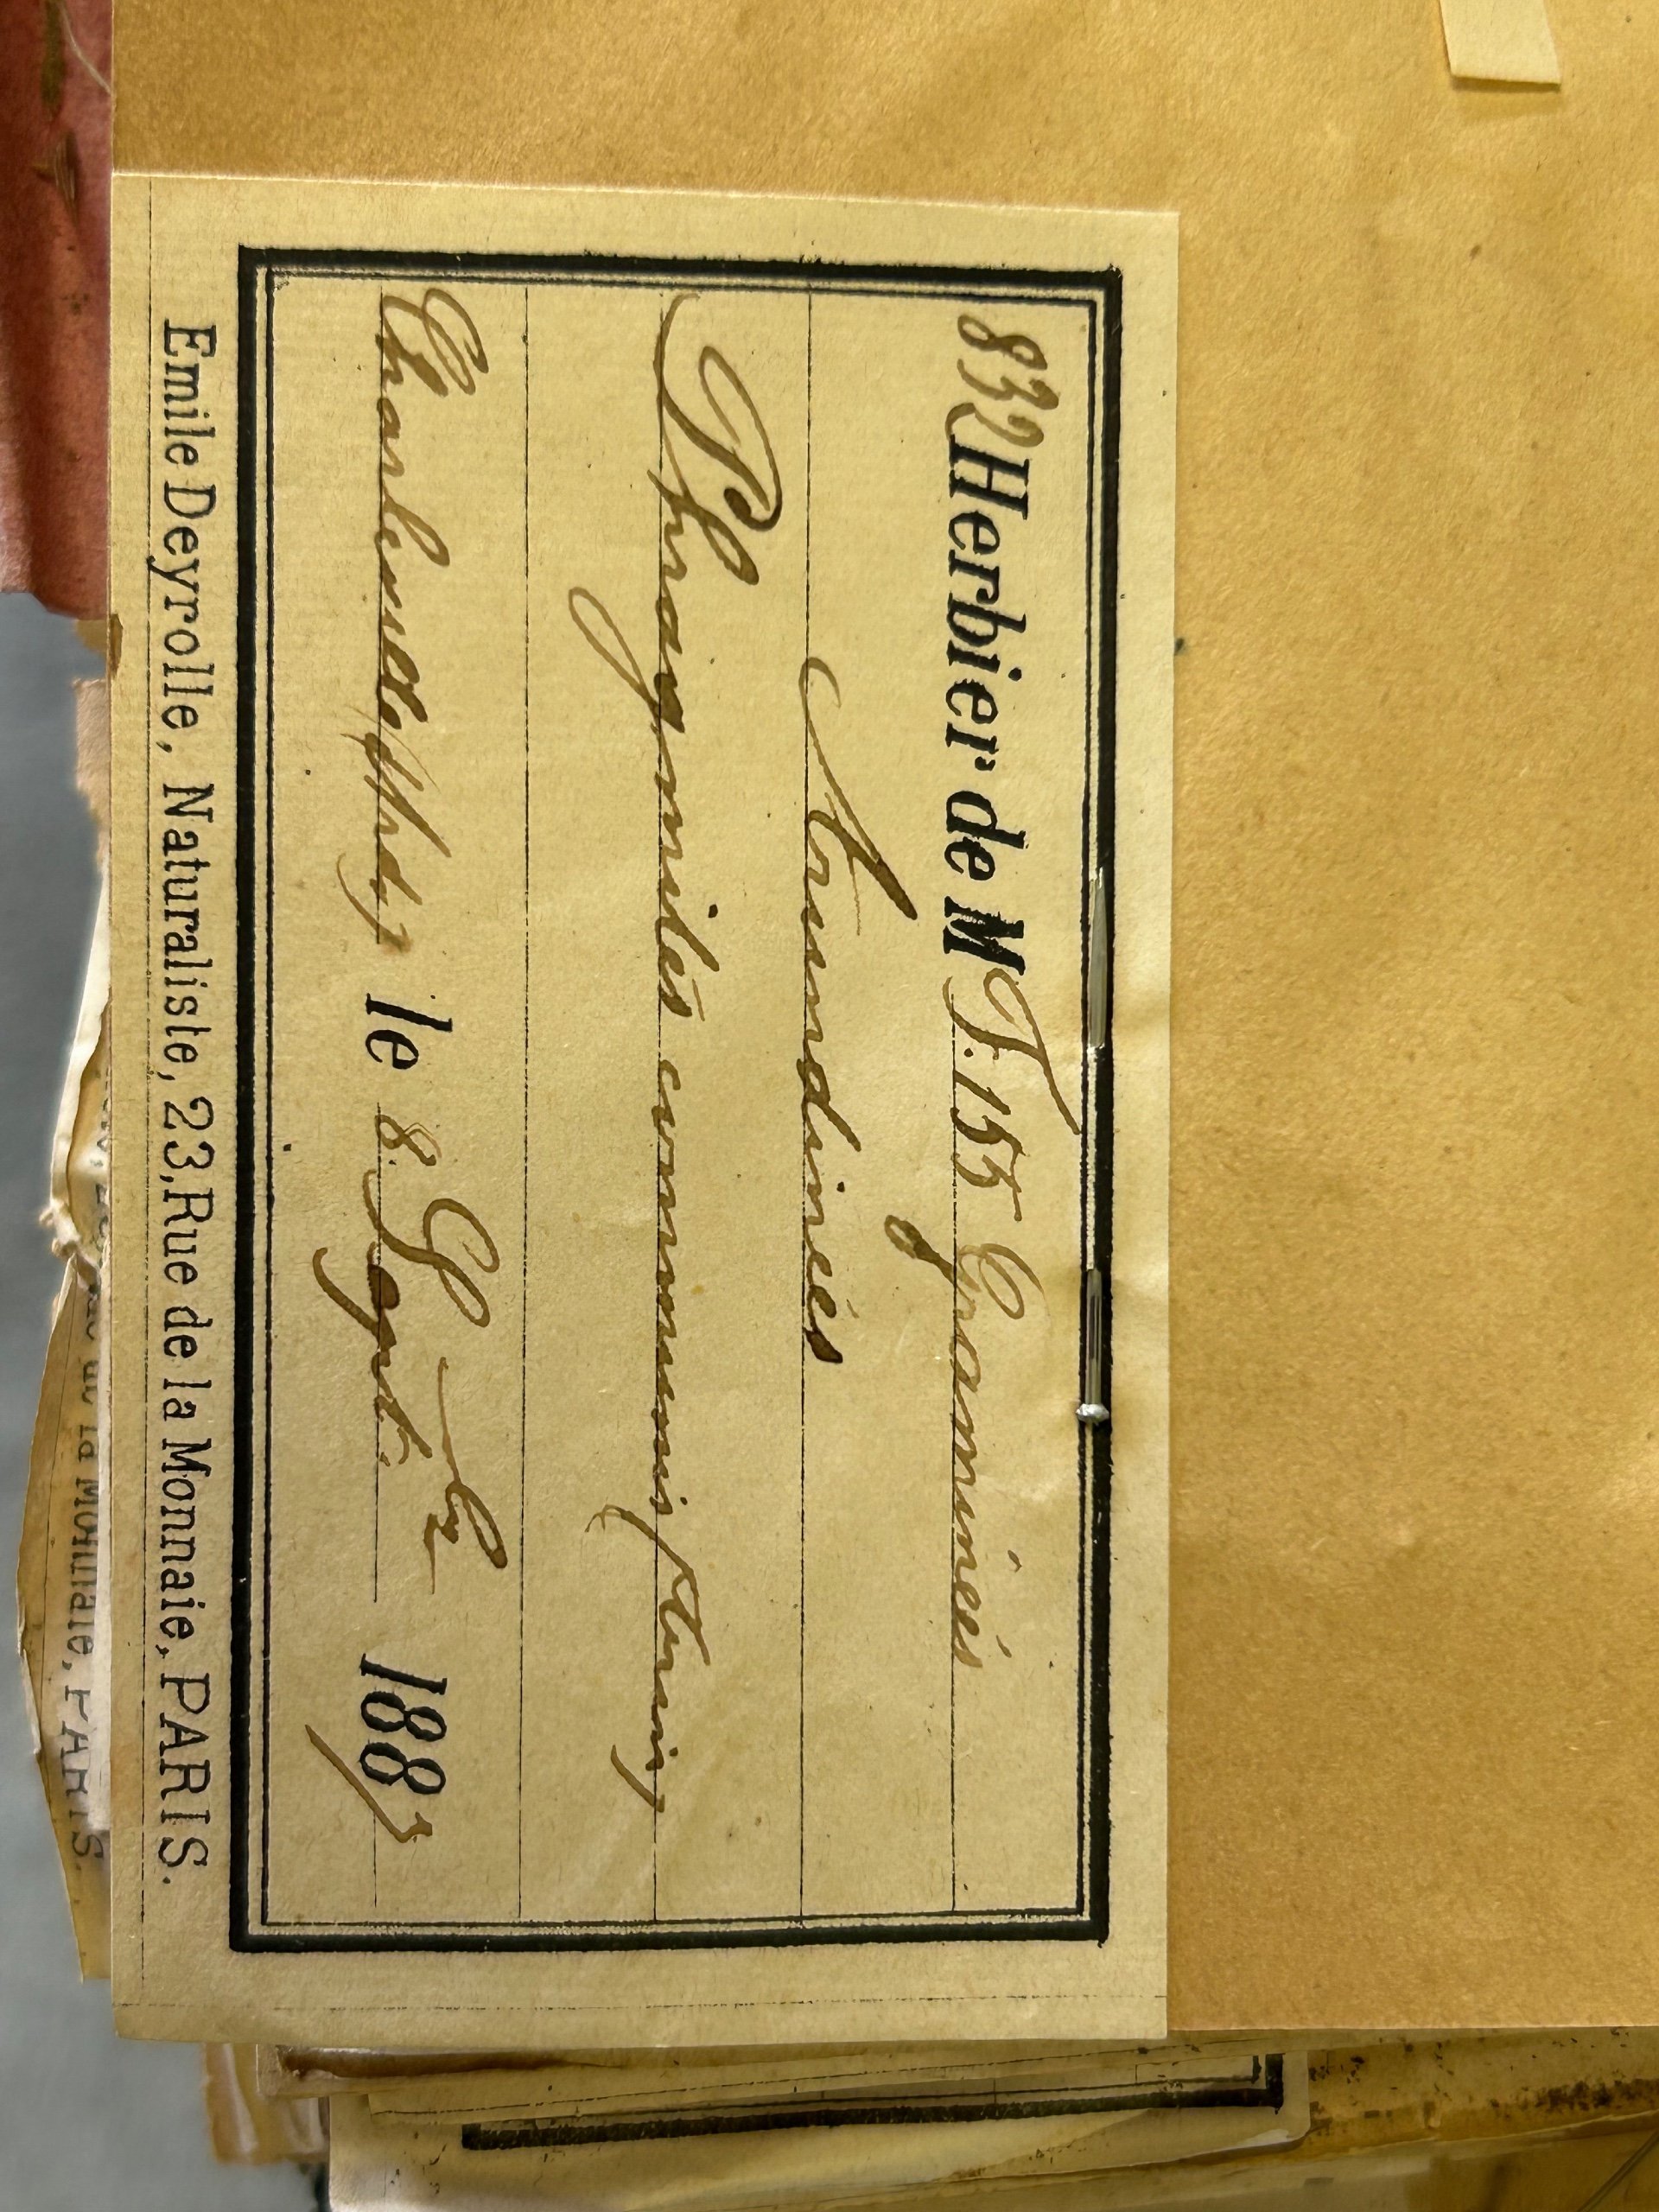 832 Herbier de M T. 155 Graminées
Arundinées
Phragmites communis, Trin;
Charleville (Ard.), le 8. Sept. bre 1883
Emile Deyrolle, Naturaliste, 23, Rue de la Monnaie, PARIS.
de la Monnaie, PARIS.